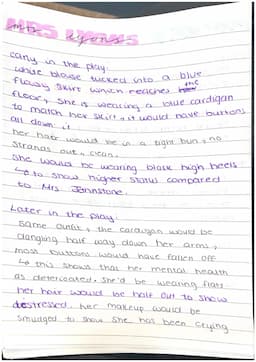 MRS LYONS
mrs lyons
early in the play.
white blouse tucked into a blue
flowy skirt which reaches the
floor, she is wearing a blue cardigan
to match her skirt, it would have buttons
all down it
her hair would be in a tight bun, no
strands out, clean.
she would be wearing black high heels
↳ to show higher status compared
to Mrs Johnstone.
Later in the play.
Same outfit, the cardigan would be
dangling half way down her arms,
most buttons would have fallen off
↳ this shows that her mental health
as deteriorated. She'd be wearing flats
her hair would be half out to show
destressed. her makeup would be
smudged to show she has been crying